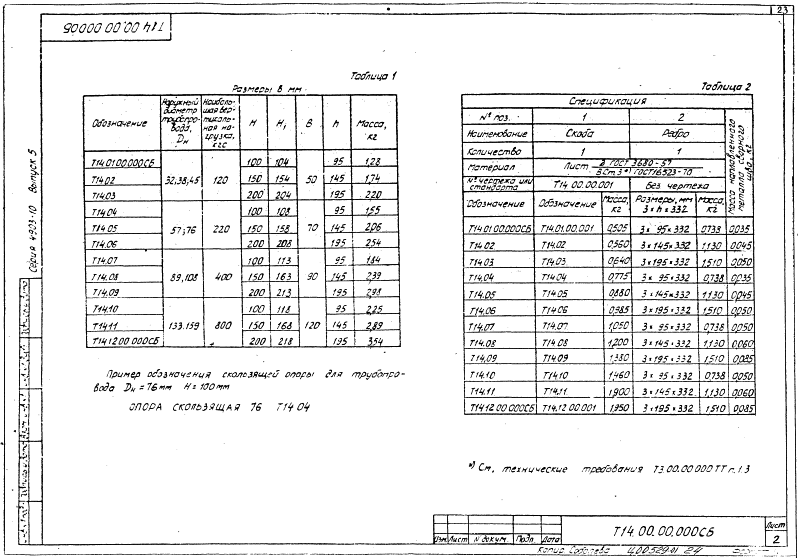 23
Т14 00.00.000СБ
Серия 4.903-10 Выпуск 5
Таблица 1
Размеры в мм
Обозначение | Наружный диаметр трубопровода, Dн | Наибольшая вертикальная нагрузка, кгс | H | H1 | B | h | Масса, кг
Т14.01.00.000СБ | 32,38,45 | 120 | 100 | 104 | 50 | 95 | 1,28
Т14.02 | 150 | 154 | 145 | 1,74
Т14.03 | 200 | 204 | 195 | 2,20
Т14.04 | 57;76 | 220 | 100 | 108 | 70 | 95 | 1,55
Т14.05 | 150 | 158 | 145 | 2,06
Т14.06 | 200 | 208 | 195 | 2,54
Т14.07 | 89,108 | 400 | 100 | 113 | 90 | 95 | 1,84
Т14.08 | 150 | 163 | 145 | 2,39
Т14.09 | 200 | 213 | 195 | 2,98
Т14.10 | 133.159 | 800 | 100 | 118 | 120 | 95 | 2,25
Т14.11 | 150 | 168 | 145 | 2,89
Т14.12.00.000СБ | 200 | 218 | 195 | 3,54
Пример обозначения скользящей опоры для трубопро-
вода Dн = 76 мм H = 100 мм
ОПОРА СКОЛЬЗЯЩАЯ 76 Т14.04
Таблица 2
Спецификация | Масса наплавленного металла сварного шва, кг
№ поз. | 1 | 2
Наименование | Скоба | Ребро
Количество | 1 | 1
Материал | Лист В ГОСТ 3680-57 / В Ст.3 *) ГОСТ16523-70
№ чертежа или стандарта | Т14.00.00.001 | Без чертежа
Обозначение | Обозначение | Масса, кг | Размеры, мм 3 × h × 332 | Масса, кг
Т14.01.00.000СБ | Т14.01.00.001 | 0,505 | 3 × 95 × 332 | 0,738 | 0,035
Т14.02 | Т14.02 | 0,560 | 3 × 145 × 332 | 1,130 | 0,045
Т14.03 | Т14.03 | 0,640 | 3 × 195 × 332 | 1,510 | 0,050
Т14.04 | Т14.04 | 0,775 | 3 × 95 × 332 | 0,738 | 0,035
Т14.05 | Т14.05 | 0,880 | 3 × 145 × 332 | 1,130 | 0,045
Т14.06 | Т14.06 | 0,985 | 3 × 195 × 332 | 1,510 | 0,050
Т14.07 | Т14.07 | 1,050 | 3 × 95 × 332 | 0,738 | 0,050
Т14.08 | Т14.08 | 1,200 | 3 × 145 × 332 | 1,130 | 0,060
Т14.09 | Т14.09 | 1,380 | 3 × 195 × 332 | 1,510 | 0,085
Т14.10 | Т14.10 | 1,460 | 3 × 95 × 332 | 0,738 | 0,050
Т14.11 | Т14.11 | 1,900 | 3 × 145 × 332 | 1,130 | 0,060
Т14.12.00.000СБ | Т14.12.00.001 | 1,950 | 3 × 195 × 332 | 1,510 | 0,085
*) См. технические требования Т3.00.00.000 ТТ п. 1.3
Изм. Лист N докум. Подп. Дата
Т14.00.00.000СБ
Лист
2
Копир. Соболева